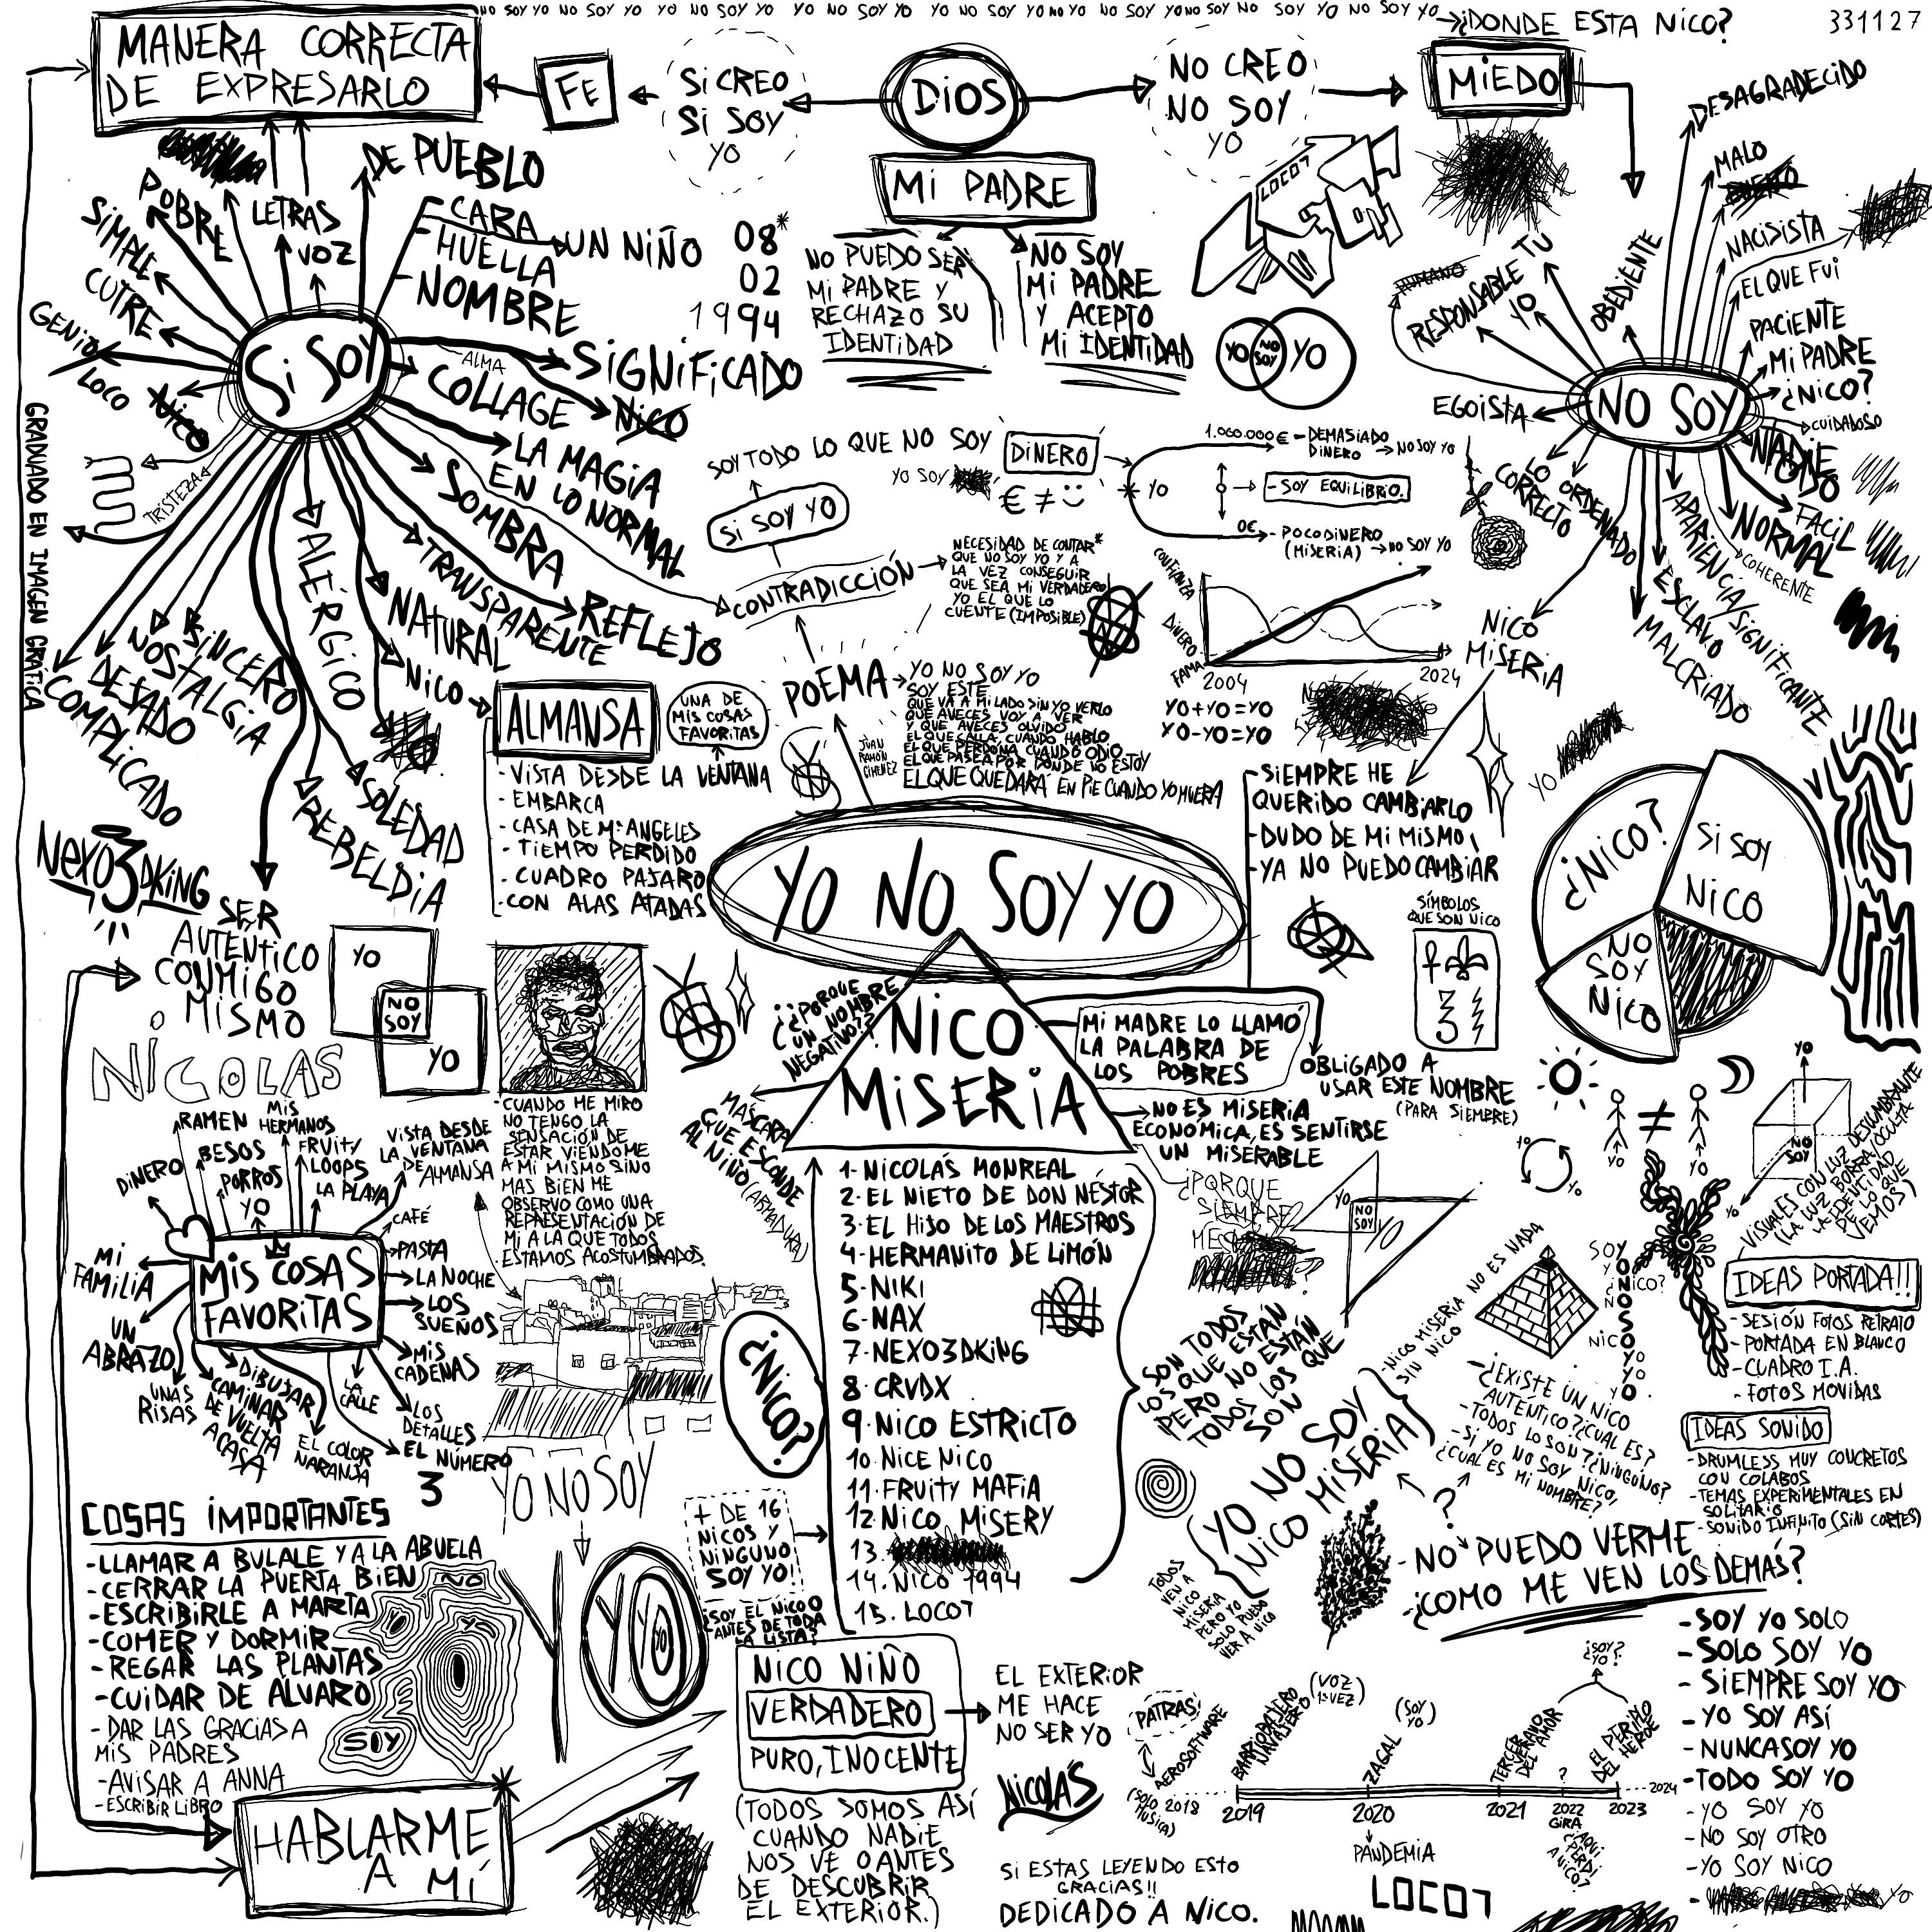 NO SOY YO NO SOY YO YO NO SOY YO YO NO SOY YO YO NO SOY YO NO YO NO SOY YO NO SOY NO SOY YO NO SOY YO
¿DONDE ESTA NICO?
331127
MANERA CORRECTA
DE EXPRESARLO
FE
SI CREO
SI SOY
YO
DIOS
NO CREO
NO SOY
YO
MIEDO
MI PADRE
NO PUEDO SER
MI PADRE Y
RECHAZO SU
IDENTIDAD
NO SOY
MI PADRE
Y ACEPTO
MI IDENTIDAD
LOCO7
YO NO SOY YO
SI SOY
DE PUEBLO
CARA
HUELLA
NOMBRE
UN NIÑO
08*
02
1994
LETRAS
VOZ
POBRE
SIMPLE
CUTRE
GENIO/
LOCO
NICO
TRISTEZA
SIGNIFICADO
ALMA
COLLAGE
NICO
LA MAGIA
EN LO NORMAL
SOMBRA
TRANSPARENTE
REFLEJO
NATURAL
NICO
ALÉRGICO
SINCERO
NOSTALGIA
DESADO
COMPLICADO
SOLEDAD
REBELDIA
SER
AUTENTICO
CONMIGO
MISMO
GRADUADO EN IMAGEN GRÁFICA
NO SOY
DESAGRADECIDO
MALO
NACISISTA
EL QUE FUI
PACIENTE
MI PADRE
¿NICO?
CUIDADOSO
NADIE
FACIL
NORMAL
COHERENTE
APARIENCIA/SIGNIFICANTE
ESCLAVO
MALCRIADO
ORDENADO
LO CORRECTO
EGOISTA
HUMANO
RESPONSABLE
TU
YO
OBEDIENTE
NICO
MISERIA
SOY TODO LO QUE NO SOY
YO SOY
SI SOY YO
CONTRADICCIÓN
NECESIDAD DE CONTAR*
QUE NO SOY YO Y A
LA VEZ CONSEGUIR
QUE SEA MI VERDADERO
YO EL QUE LO
CUENTE (IMPOSIBLE)
DINERO
€ ≠
YO
1.000.000€ - DEMASIADO
DINERO → NO SOY YO
- SOY EQUILIBRIO.
0€ - POCO DINERO
(MISERIA) → NO SOY YO
CONFIANZA
DINERO
FAMA
2004
2024
YO+YO=YO
YO-YO=YO
POEMA
JUAN
RAMÓN
GIMENEZ
YO NO SOY YO
SOY ESTE
QUE VA A MI LADO SIN YO VERLO
QUE AVECES VOY A VER
Y QUE AVECES OLVIDO
EL QUE CALLA, CUANDO HABLO
EL QUE PERDONA CUANDO ODIO
EL QUE PASEA POR DONDE NO ESTOY
EL QUE QUEDARÁ EN PIE CUANDO YO MUERA
ALMANSA
UNA DE
MIS COSAS
FAVORITAS
- VISTA DESDE LA VENTANA
- EMBARCA
- CASA DE Mª ANGELES
- TIEMPO PERDIDO
- CUADRO PAJARO
- CON ALAS ATADAS
- SIEMPRE HE
QUERIDO CAMBIARLO
- DUDO DE MI MISMO
- YA NO PUEDO CAMBIAR
YO
SÍMBOLOS
QUE SON NICO
¿NICO?
SI SOY
NICO
NO
SOY
NICO
NEXO3DKING
YO NO SOY YO
YO
NO
SOY
YO
NICOLAS
- CUANDO ME MIRO
NO TENGO LA
SENSACIÓN DE
ESTAR VIENDOME
A MI MISMO SINO
MAS BIEN ME
OBSERVO COMO UNA
REPRESENTACIÓN DE
MI A LA QUE TODOS
ESTAMOS ACOSTUMBRADOS.
NICO
MISERIA
¿¿PORQUE
UN NOMBRE
NEGATIVO??
MÁSCARA
QUE ESCONDE
AL NIÑO (ARMADURA)
MI MADRE LO LLAMÓ
LA PALABRA DE
LOS POBRES
OBLIGADO A
USAR ESTE NOMBRE
(PARA SIEMPRE)
NO ES MISERIA
ECONOMICA, ES SENTIRSE
UN MISERABLE
¿PORQUE
SIEMPRE
ME
1- NICOLÁS MONREAL
2- EL NIETO DE DON NÉSTOR
3- EL HIJO DE LOS MAESTROS
4- HERMANITO DE LIMÓN
5- NIKI
6- NAX
7- NEXO3DKING
8- CRVDX
9- NICO ESTRICTO
10- NICE NICO
11- FRUITY MAFIA
12- NICO MISERY
13.
14. NICO 1994
15. LOCO7
¿NICO?
+ DE 16
NICOS Y
NINGUNO
SOY YO!
¿SOY EL NICO 0
ANTES DE TODA
LA LISTA?
SON TODOS
LOS QUE ESTÁN
PERO NO ESTÁN
TODOS LOS QUE
SON
YO
NO
SOY
YO
YO NO SOY
NICO MISERIA
- NICO MISERIA NO ES NADA
SIN NICO
TODOS
VEN A
NICO
MISERIA
PERO YO
SOLO PUEDO
VER A NICO
YO
YO
≠
YO
YO
YO
NO
SOY
YO
- VISUALES CON LUZ DESLUMBRANTE
(LA LUZ BORRA/OCULTA
LA IDENTIDAD
DE LO QUE
VEMOS)
SOY
YO
NO
SOY
YO
¿NICO?
NICO
- ¿EXISTE UN NICO
AUTENTICO? ¿CUAL ES?
- TODOS LO SON? ¿NINGUNO?
- SI YO NO SOY NICO,
¿CUAL ES MI NOMBRE?
?
IDEAS PORTADA!!
- SESIÓN FOTOS RETRATO
- PORTADA EN BLANCO
- CUADRO I.A.
- FOTOS MOVIDAS
IDEAS SONIDO
- DRUMLESS MUY CONCRETOS
CON COLABOS
- TEMAS EXPERIMENTALES EN
SOLITARIO
- SONIDO INFINITO (SIN CORTES)
- NO PUEDO VERME
¿COMO ME VEN LOS DEMÁS?
MIS COSAS
FAVORITAS
DINERO
RAMEN
BESOS
PORROS
YO
MIS
HERMANOS
FRUITY
LOOPS
LA PLAYA
VISTA DESDE
LA VENTANA
DE ALMANSA
CAFÉ
PASTA
LA NOCHE
LOS
SUEÑOS
MIS
CADENAS
LOS
DETALLES
EL NÚMERO
3
LA
CALLE
EL COLOR
NARANJA
DIBUJAR
CAMINAR
DE VUELTA
A CASA
UNAS
RISAS
UN
ABRAZO
MI
FAMILIA
YO NO SOY
YO
COSAS IMPORTANTES
- LLAMAR A BULALE Y A LA ABUELA
- CERRAR LA PUERTA BIEN
- ESCRIBIRLE A MARTA
- COMER Y DORMIR
- REGAR LAS PLANTAS
- CUIDAR DE ÁLVARO
- DAR LAS GRACIAS A
MIS PADRES
- AVISAR A ANNA
- ESCRIBIR LIBRO
NO
YO
SOY
HABLARME
A MÍ
NICO NIÑO
VERDADERO
PURO, INOCENTE
(TODOS SOMOS ASÍ
CUANDO NADIE
NOS VE O ANTES
DE DESCUBRIR
EL EXTERIOR.)
EL EXTERIOR
ME HACE
NO SER YO
NICOLÁS
SI ESTAS LEYENDO ESTO
GRACIAS!!
DEDICADO A NICO.
PATRAS
AEROSOFTWARE
(SOLO 2018
MUSICA)
BARRIOBAJERO
NAVAJERO
(VOZ)
1ª VEZ)
ZAGAL
(SOY
YO)
TERCER
VERANO
DEL AMOR
?
EL PERFILO
DEL HEROE
¿SOY
YO?
2019
2020
2021
2022
2023
2024
PANDEMIA
GIRA
¿AQUI
PERDI
A NICO?
LOCO7
- SOY YO SOLO
- SOLO SOY YO
- SIEMPRE SOY YO
- YO SOY ASÍ
- NUNCA SOY YO
- TODO SOY YO
- YO SOY YO
- NO SOY OTRO
- YO SOY NICO
- YO